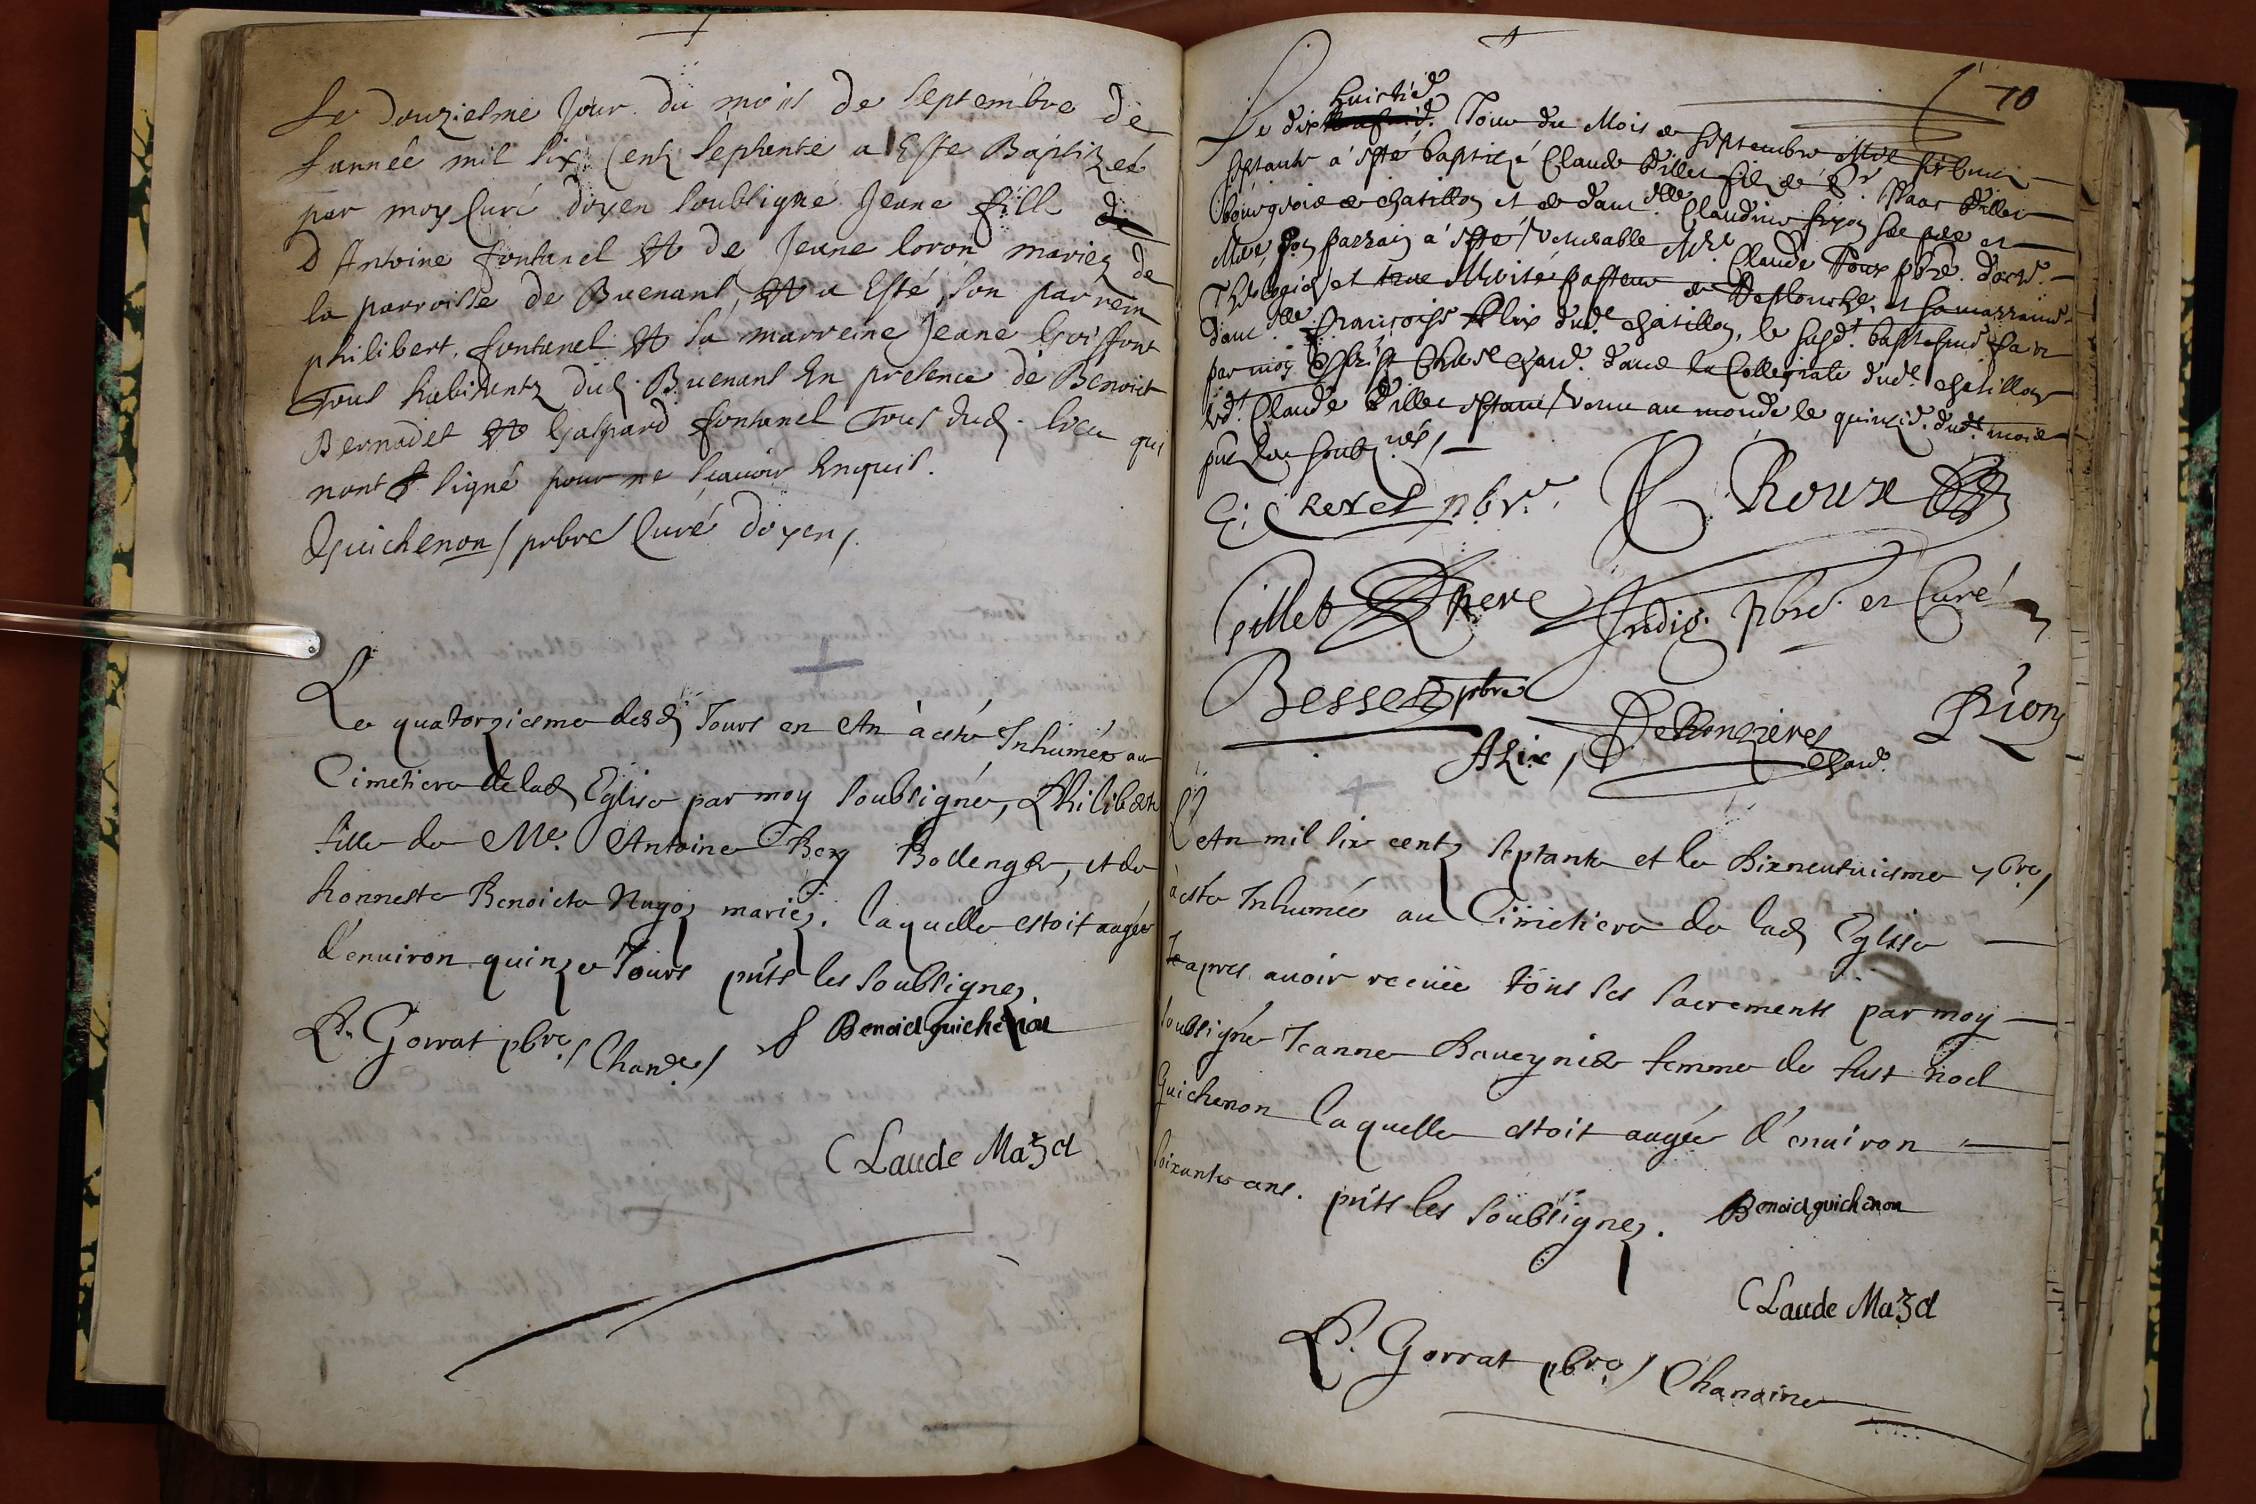 Le douziesme Jour du mois de septembre de
Lannée mil six Cent septente a Esté Baptizée
par moy Curé doyen soubsigne Jeane fille
d Antoine fontanel et de Jeane loron mariez de
la parroisse de Buenant, et a Esté son parrein
philibert fontanel et sa marreine Jeane Goiffont
Tous habitentz dud. Buenant En presence de Benoict
Bernadet et Gaspard fontanel Tous dud. lieu qui
nont signé pour ne scavoir Enquis.
Guichenon / prbre Curé doyen /.
Le quatorziesme desd Jours en An à esté Inhumée au
Cimetiere de lad Eglise par moy soubsignée, Philiberte
fille de Me. Antoine Rey Bollenger, et de
honneste Benoiste Nugoz mariez. laquelle estoit aagée
d'enuiron quinze Jours pnts les soubsignez.
Ph. Gorrat pbre / Chane. / Benoict guichenon
Claude Mazet
70
huictie.
Le dix Jour du Mois de septembre Mil six Cent
septante a esté baptizé Claude Pillet filz de Sr. Isaac Pillet
bourgeois de chatillon et de dam.lle Claudine son pere et
Mere, son parrain a esté venerable Mre. Claude Roux pbre. doct.
Theologie et pasteur de et sa marraine
dam.lle françoise Alix dud. chatillon, le susd. baptesme fait
par moy chan. dans la Collegiale dud. chatillon
led. Claude Pillet estant venu au monde le quinzie. dud. mois
pnt les soubz.nés /
Cheret pbre. C. Roux
Pillet pere Indig. pbre. et Curé
Besset pbre
Alix, DeRonzieres Chan. Rion
L'An mil six centz septante et le dixneufuiesme 7bre /
à esté Inhumée au Cimetiere de lad Eglise
apres auoir receüe tous ses sacrements par moy
soubsigné Jeanne femme de fust noel
Guichenon laquelle estoit aagée d'enuiron
soixante ans. pnts les soubsignez. Benoict guichenon
Claude Mazet
Ph. Gorrat pbre / Chanoine